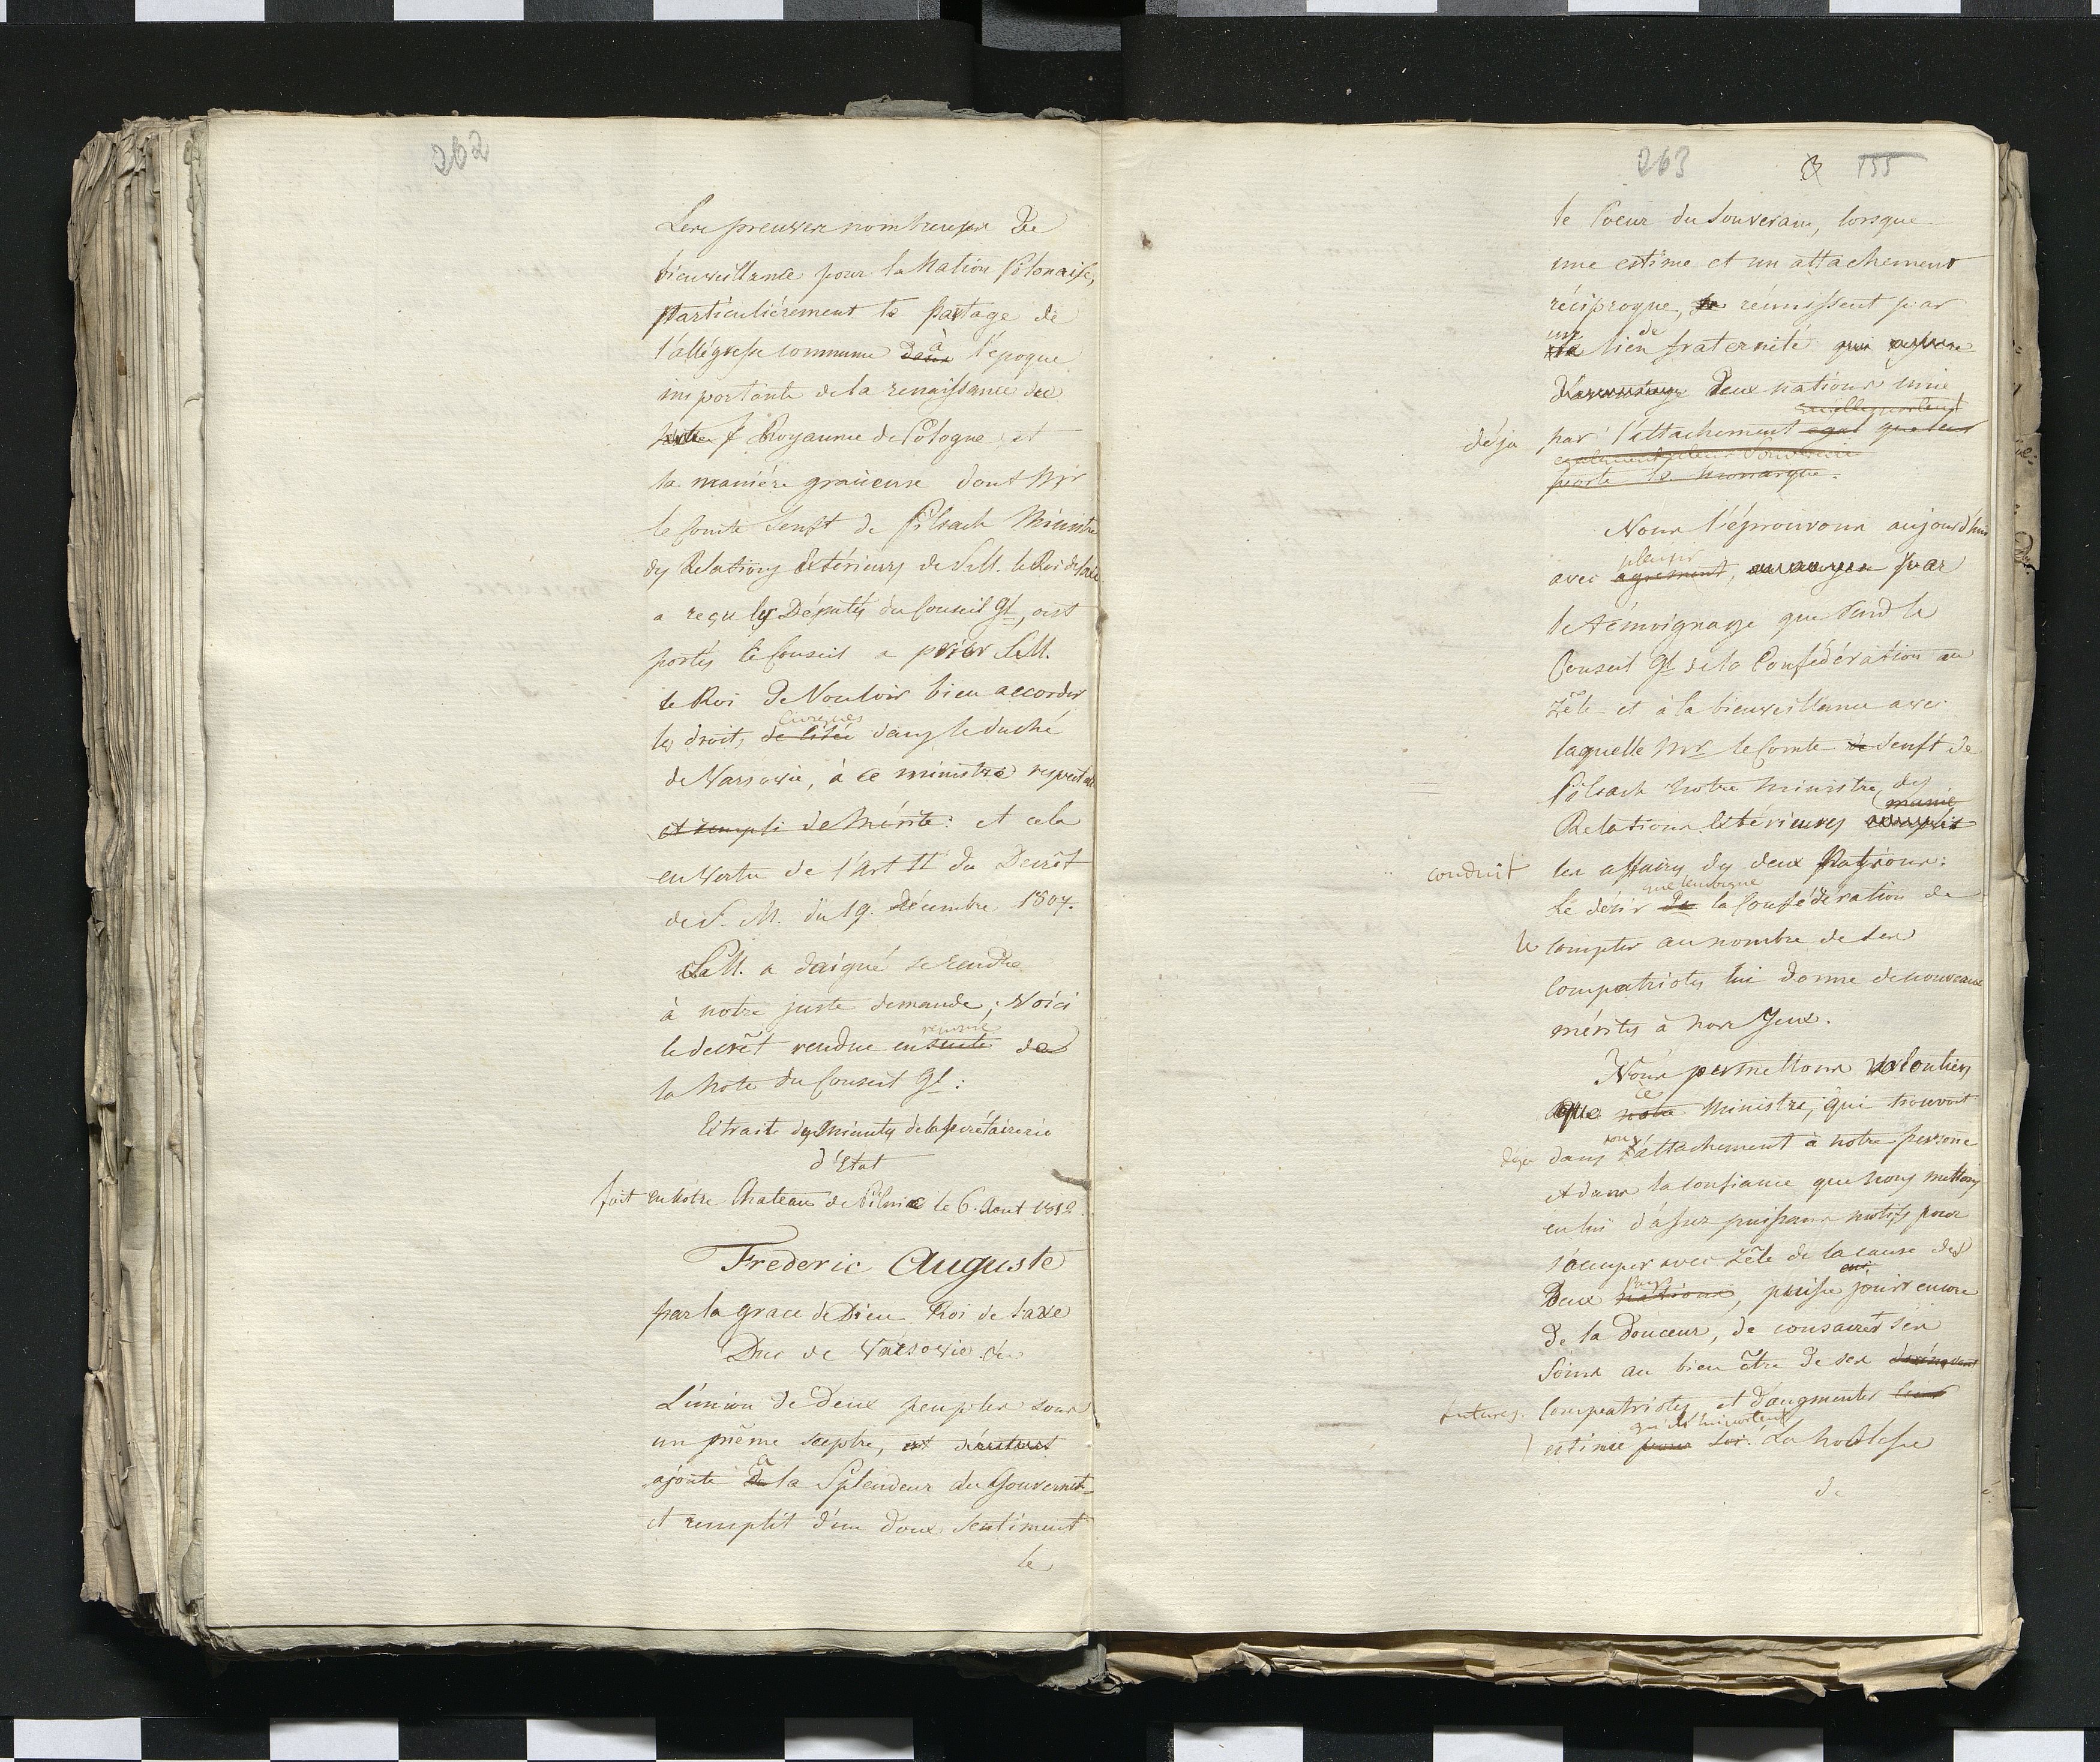 262
Les preuves nombreuses de
bienveillance pour la Nation Polonaise,
particuliérement le partage de
l'allégresse commune dans à l'epoque
importante de la renaissance du
Royaume de Pologne et
la maniére gracieuse dont Mr
le Comte Senft de Pilsach Ministre
des Relations Extérieurs de S.M. le Roi de Saxe
a reçu les Députés du Conseil Gl, ont
portés le Conseil a prier S.M.
le Roi de Vouloir bien accorder
civiques
les droits de Cité dans le duché
de Varsovie, à ce ministre respectable
et rempli de Mérite: et cela
en Vertu de l'Art II du Decrêt
de S. M. du 19. Décembre 1807.
S.M. a daigné se rendre
à notre juste demande; Voici
le decrêt rendue en suite de
la Note du Conseil Gl:
Extrait des Minutes de la Secrétairerie
d'Etat
fait en nôtre Chateau de Pilnic le 6. Aout 1812.
Frederic Auguste
par la grace de Dieu Roi de Saxe
Duc de Varsovie &c
L'union de deux peuples sous
un même sceptre, est d'autant
ajoute de à la Splendeur du Gouvernet
et remplit d'un doux sentiment
le
263 155
le Coeur du Souverain, lorsque
une estime et un attachement
réciproque, se réunissent par
un lien de fraternité qui
deux nations unie
qu'elles portent
déja par l'attachement egal que leur
également à leur Souverain
porte le Monarque.
Nous l'éprouvons aujourd'hui
plaisir
avec agrement, par
le témoignage que rend le
Conseil Gl de la Confédération au
zêle et à la bienveillance avec
laquelle Mr le Comte de Senft de
Pilsach notre ministre des
manie
Relations Extérieures
conduit les affaires des deux Nations:
que témoigne
Le désir de la Confédération de
le compter au nombre de ses
Compatriotes lui donne de nouveaux
mérites à nos Yeux.
Nous permettons volontiers
ce
que notre Ministre, qui trouvoit
son
déja dans l'attachement à notre personne
et dans la confiance que nous mettons
en lui d'assez puissans motifs pour
s'occuper avec zêle de la cause des
Pays
deux nations, puisse jouir encore
de la douceur, de consacrer ses
Soins au bien être de ses
futures Compatriotes, et d'augmenter leur
qu'ils lui portent
estime pour lui. La Noblesse
de